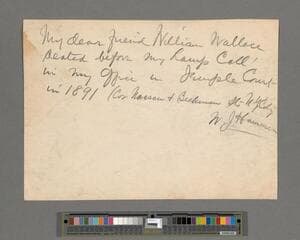 My dear friend William Wallace
seated before my Lamp Call!
in my office in Temple Court
in 1891 (Cor Nassau & Beekman Sts NYCity
W. J. Hammer